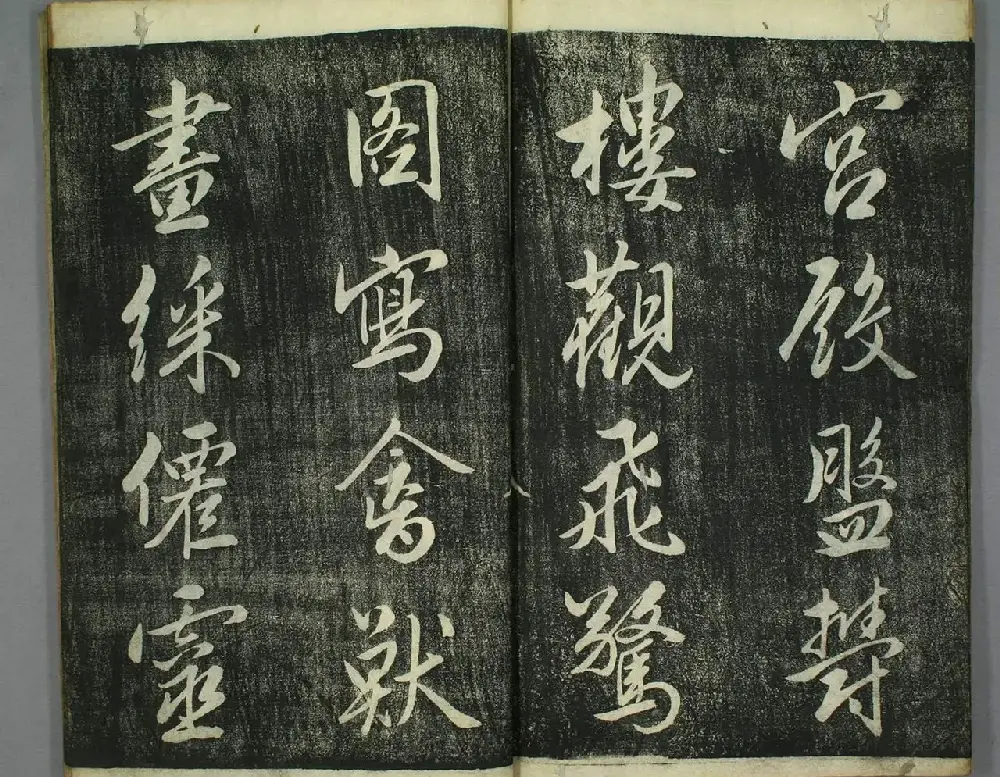 宮殿盤欝
樓觀飛驚
圖寫禽獸
畫綵僊靈